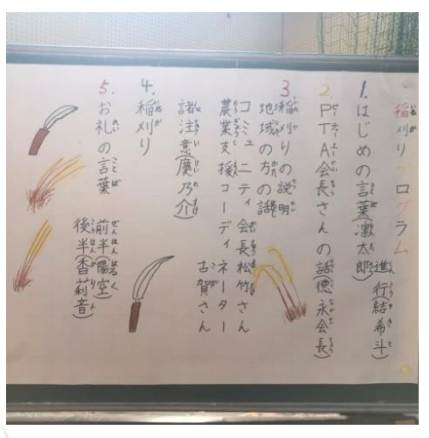 稲刈りプログラム
進行(結希斗)
1.はじめの言葉(凛太郎)
2.PTA会長さんの話(徳永会長)
3.稲刈りの説明
地域の方の話
コミュニティ会長松竹さん
農業支援コーディネーター
古賀さん
諸注意(慶乃介)
4.稲刈り
5.お礼の言葉
前半(陽空)
後半(香莉音)